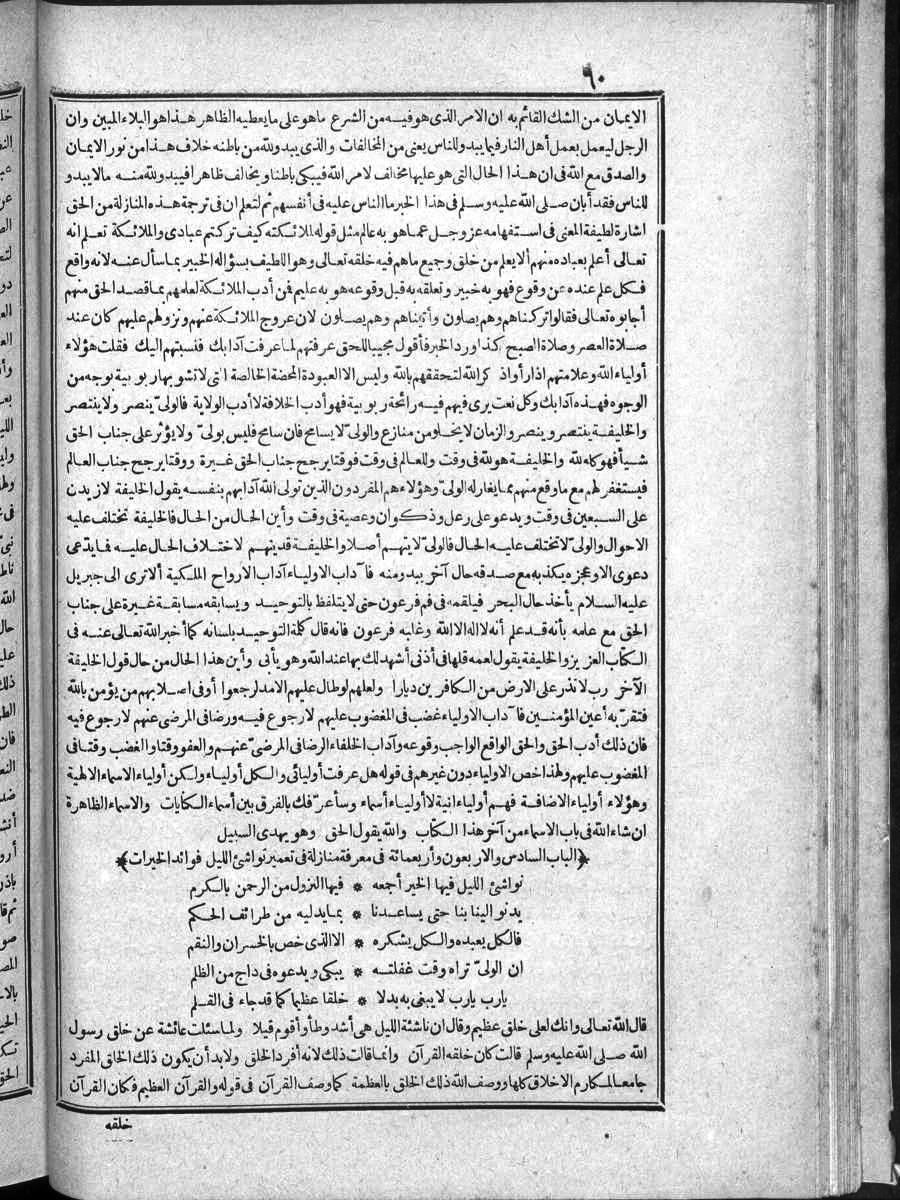 ٦٠
الايمان من الشك القائم به ان الامر الذى هو فيه من الشرع ماهو على ما يعطيه الظاهر هذا هو البلاء المبين وان
الرجل ليعمل بعمل أهل النار فيما يبدو للناس يعنى من المخالفات والذى يبدو لله من باطنه خلاف هذا من نور الايمان
والصدق مع الله فى ان هذا الحال التى هو عليها مخالف لامر الله فيبكى باطنا ويخالف ظاهرا فيبدو لله منه مالا يبدو
للناس فقد أبان صلى الله عليه وسلم فى هذا الخبر ما الناس عليه فى أنفسهم ثم لتعلم ان فى ترجمة هذه المنازلة من الحق
اشارة لطيفة المعنى فى استفهامه عز وجل عما هو به عالم مثل قوله لملائكته كيف تركتم عبادى والملائكة تعلم انه
تعالى أعلم بعباده منهم ألا يعلم من خلق وجميع ماهم فيه خلقه تعالى وهو اللطيف بسؤاله الخبير بما سأل عنه لانه واقع
فكل علم عنده عن وقوع فهو به خبير وتعلقه به قبل وقوعه هو به عليم فمن أدب الملائكة لعلمهم بما قصد الحق منهم
أجابوه تعالى فقالوا تركناهم وهم يصلون وأتيناهم وهم يصلون لان عروج الملائكة عنهم ونزولهم عليهم كان عند
صلاة العصر وصلاة الصبح كذا ورد الخبر فأقول مجيبا للحق عرفتهم لما عرفت آدابك فنسبتهم اليك فقلت هؤلاء
أولياء الله وعلامتهم اذا رأوا ذكر الله لتحققهم بالله وليس الا العبودة المحضة الخالصة التى لا تشو بها ربو بية بوجه من
الوجوه فهذه آدابك وكل نعت يرى فيهم فيه رائحة ربو بية فهو أدب الخلافة لا أدب الولاية فالولىّ ينصر ولا ينتصر
والخليفة ينتصر وينصر والزمان لا يخلو من منازع والولىّ لا يسامح فان سامح فليس بولىّ ولا يؤثر على جناب الحق
شيأ فهو كله لله والخليفة هو لله فى وقت وللعالم فى وقت فوقتا يرجح جناب الحق غيرة ووقتا يرجح جناب العالم
فيستغفر لهم مع ما وقع منهم بما يغار له الولىّ وهؤلاء هم المفردون الذين تولى الله آدابهم بنفسه يقول الخليفة لازيدن
على السبعين فى وقت ويدعو على رعل وذكوان وعصية فى وقت وأين الحال من الحال فالخليفة تختلف عليه
الاحوال والولىّ لا تختلف عليه الحال فالولىّ لا يتهم أصلا والخليفة قد يتهم لاختلاف الحال عليه فما يدّعى
دعوى الا وعجزه يكذبه مع صدقه حال آخر يبدو منه فآداب الاولياء آداب الارواح الملكية ألا ترى الى جبريل
عليه السلام يأخذ حال البحر فيلقمه فى فم فرعون حتى لا يتلفظ بالتوحيد ويسابقه مسابقة غيرة على جناب
الحق مع علمه بأنه قد علم أنه لا اله الا الله وغلبه فرعون فانه قال كلمة التوحيد بلسانه كما أخبر الله تعالى عنه فى
الكتاب العزيز والخليفة يقول لعمه قلها فى أذنى أشهد لك بها عند الله وهو يأبى وأين هذا الحال من حال قول الخليفة
الآخر رب لا تذر على الارض من الكافرين ديارا ولعلهم لو طال عليهم الامد لرجعوا أو فى اصلابهم من يؤمن بالله
فتقرّ به أعين المؤمنين فآداب الاولياء غضب فى المغضوب عليهم لا رجوع فيه ورضا فى المرضى عنهم لا رجوع فيه
فان ذلك أدب الحق والحق الواقع الواجب وقوعه وآداب الخلفاء الرضا فى المرضىّ عنهم والعفو وقتا والغضب وقتا فى
المغضوب عليهم ولهذا خص الاولياء دون غيرهم فى قوله هل عرفت أوليائى والكل أولياء ولكن أولياء الاسماء الالهية
وهؤلاء أولياء الاضافة فهم أولياء انية لا أولياء أسماء وسأعرّفك بالفرق بين أسماء الكنايات والاسماء الظاهرة
ان شاء الله فى باب الاسماء من آخر هذا الكتاب والله يقول الحق وهو يهدى السبيل
﴿الباب السادس والاربعون وأربعمائة فى معرفة منازلة فى تعمير نواشئ الليل فوائد الخيرات﴾
نواشئ الليل فيها الخير أجمعه * فيها النزول من الرحمن بالكرم
يدنو الينا بنا حتى يساعدنا * بما يدليه من طرائف الحكم
فالكل يعبده والكل يشكره * الا الذى خص بالخسران والنقم
ان الولىّ تراه وقت غفلته * يبكى ويدعوه فى داج من الظلم
يارب يارب لا يبغى به بدلا * خلقا عظيما كما قد جاء فى القلم
قال الله تعالى وانك لعلى خلق عظيم وقال ان ناشئة الليل هى أشد وطأ وأقوم قيلا ولما سئلت عائشة عن خلق رسول
الله صلى الله عليه وسلم قالت كان خلقه القرآن وانما قالت ذلك لانه أفرد الخلق ولا بد أن يكون ذلك الخلق المفرد
جامعا لمكارم الاخلاق كلها ووصف الله ذلك الخلق بالعظمة كما وصف القرآن فى قوله والقرآن العظيم فكان القرآن
خلقه